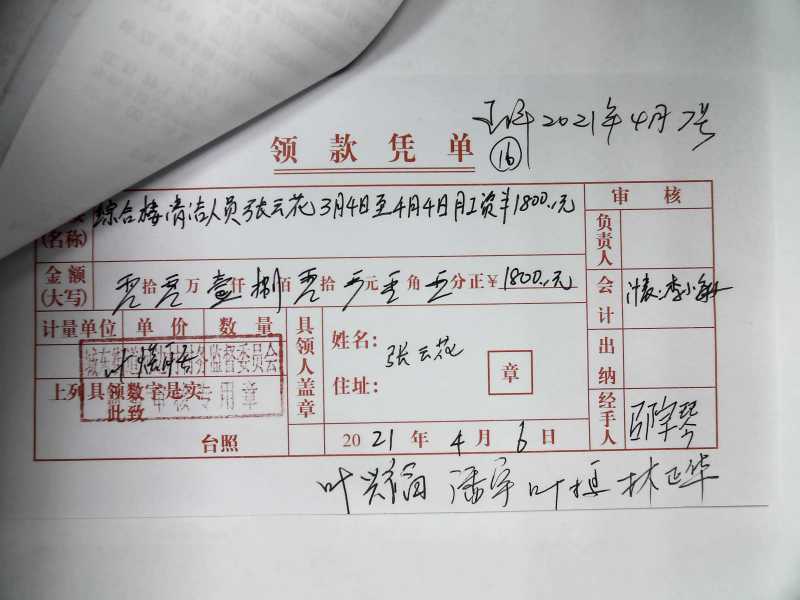 2021年4月7号
领款凭单
16
综合楼清洁人员张云花3月4日至4月4日月工资¥1800.元
(名称)
审核
负责人
金额
(大写)
零拾零万壹仟捌佰零拾零元零角零分正¥1800.元
会计
李小
计量单位 单价 数量
具领人盖章
姓名:张云花
住址:
章
出纳
务监督委员会
审核专用章
上列具领数字是实
此致
台照
2021年4月6日
经手人
叶兴 潘军 叶 林正华